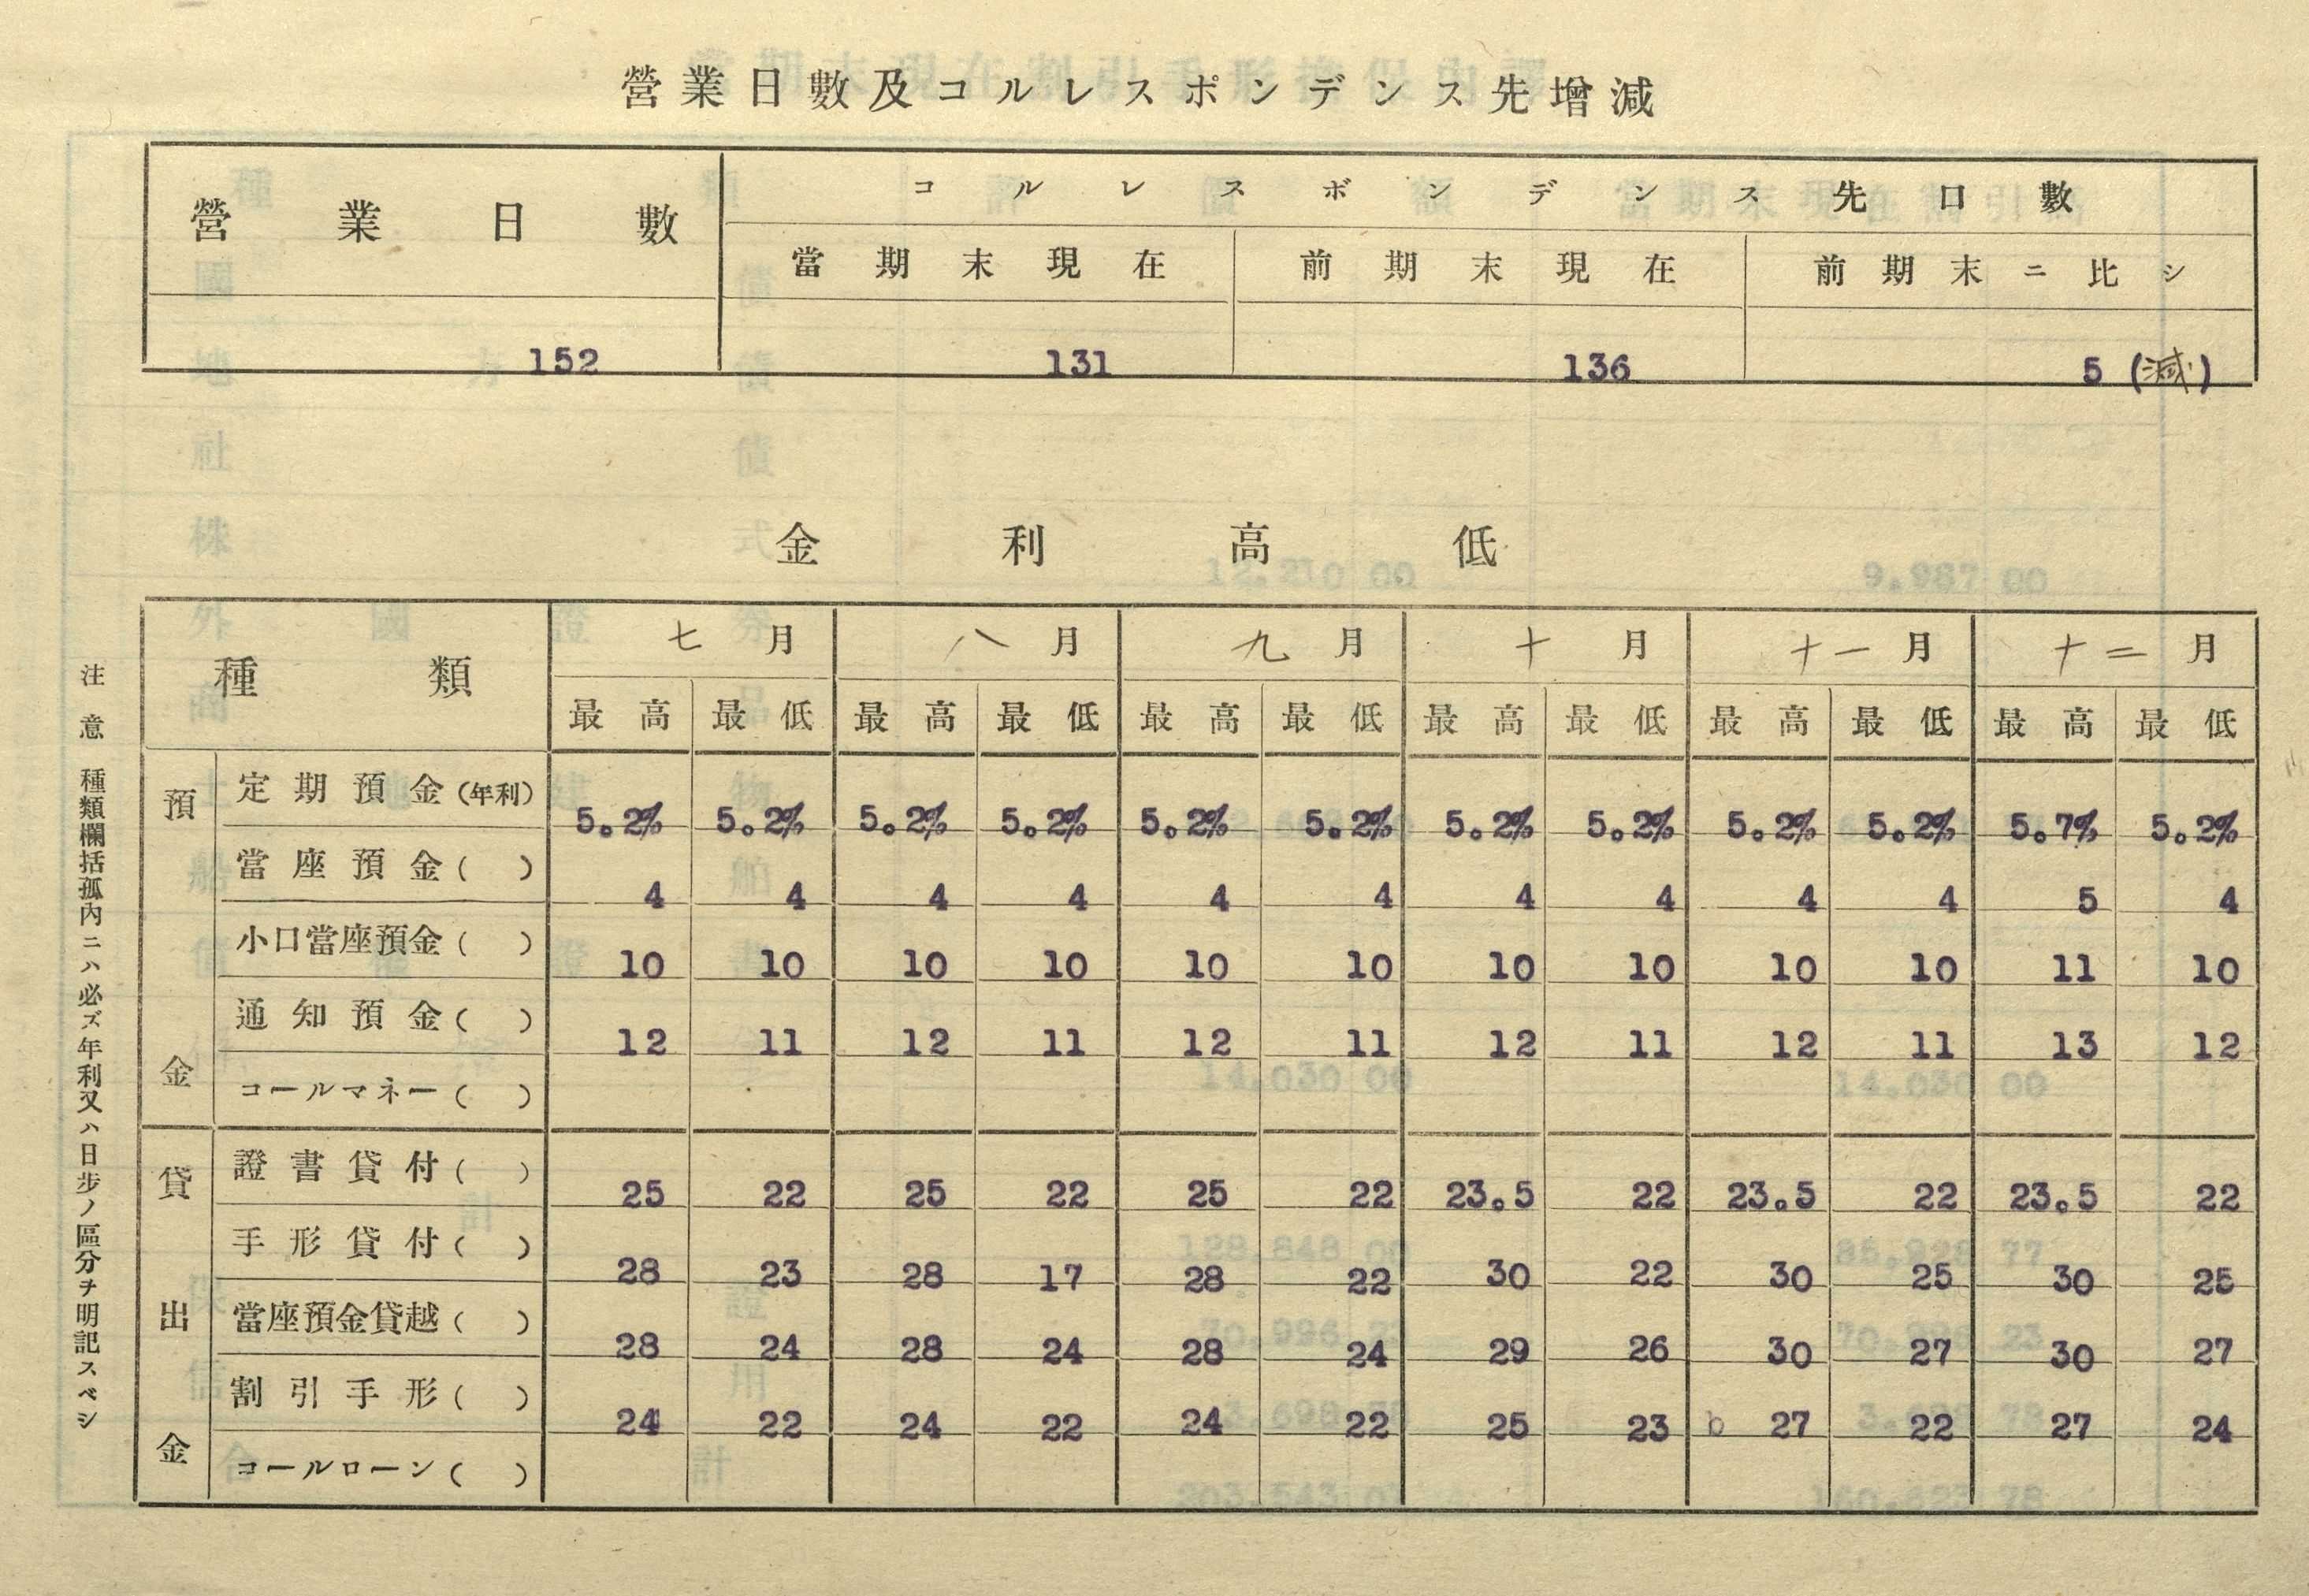 營業日數及コルレスポンデンス先增減
營業日數 コルレスポンデンス先口數
當期末現在 前期末現在 前期末ニ比シ
152 131 136 5 (減)
金利高低
種類 七月 八月 九月 十月 十一月 十二月
最高 最低 最高 最低 最高 最低 最高 最低 最高 最低 最高 最低
預金
定期預金(年利) 5.2% 5.2% 5.2% 5.2% 5.2% 5.2% 5.2% 5.2% 5.2% 5.2% 5.7% 5.2%
當座預金( ) 4 4 4 4 4 4 4 4 4 4 5 4
小口當座預金( ) 10 10 10 10 10 10 10 10 10 10 11 10
通知預金( ) 12 11 12 11 12 11 12 11 12 11 13 12
コールマネー( )
貸出金
證書貸付( ) 25 22 25 22 25 22 23.5 22 23.5 22 23.5 22
手形貸付( ) 28 23 28 17 28 22 30 22 30 25 30 25
當座預金貸越( ) 28 24 28 24 28 24 29 26 30 27 30 27
割引手形( ) 24 22 24 22 24 22 25 23 27 22 27 24
コールローン( )
注意 種類欄括孤內ニハ必ズ年利又ハ日步ノ區分ヲ明記スベシ